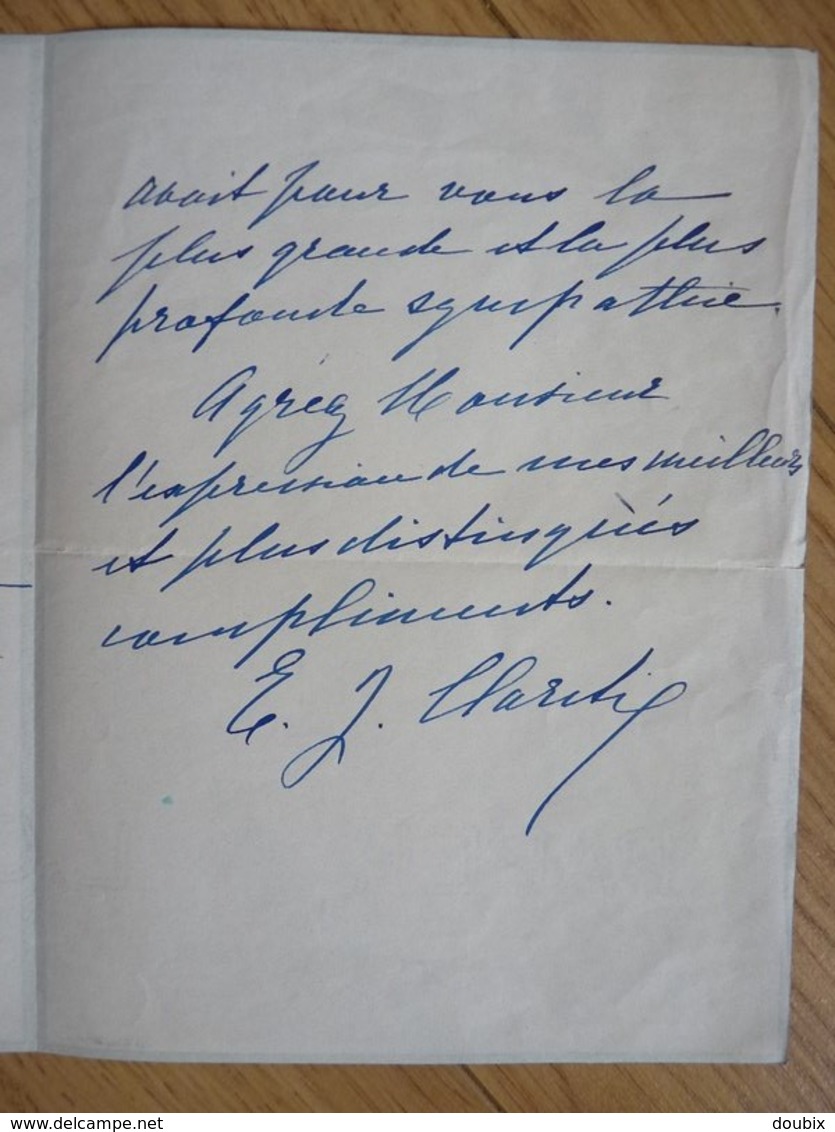 avait pour vous la
plus grande et la plus
profonde sympathie.
Agréez Monsieur
l'expression de mes meilleurs
et plus distingués
compliments.
E. J.
www.delcampe.net
doubix